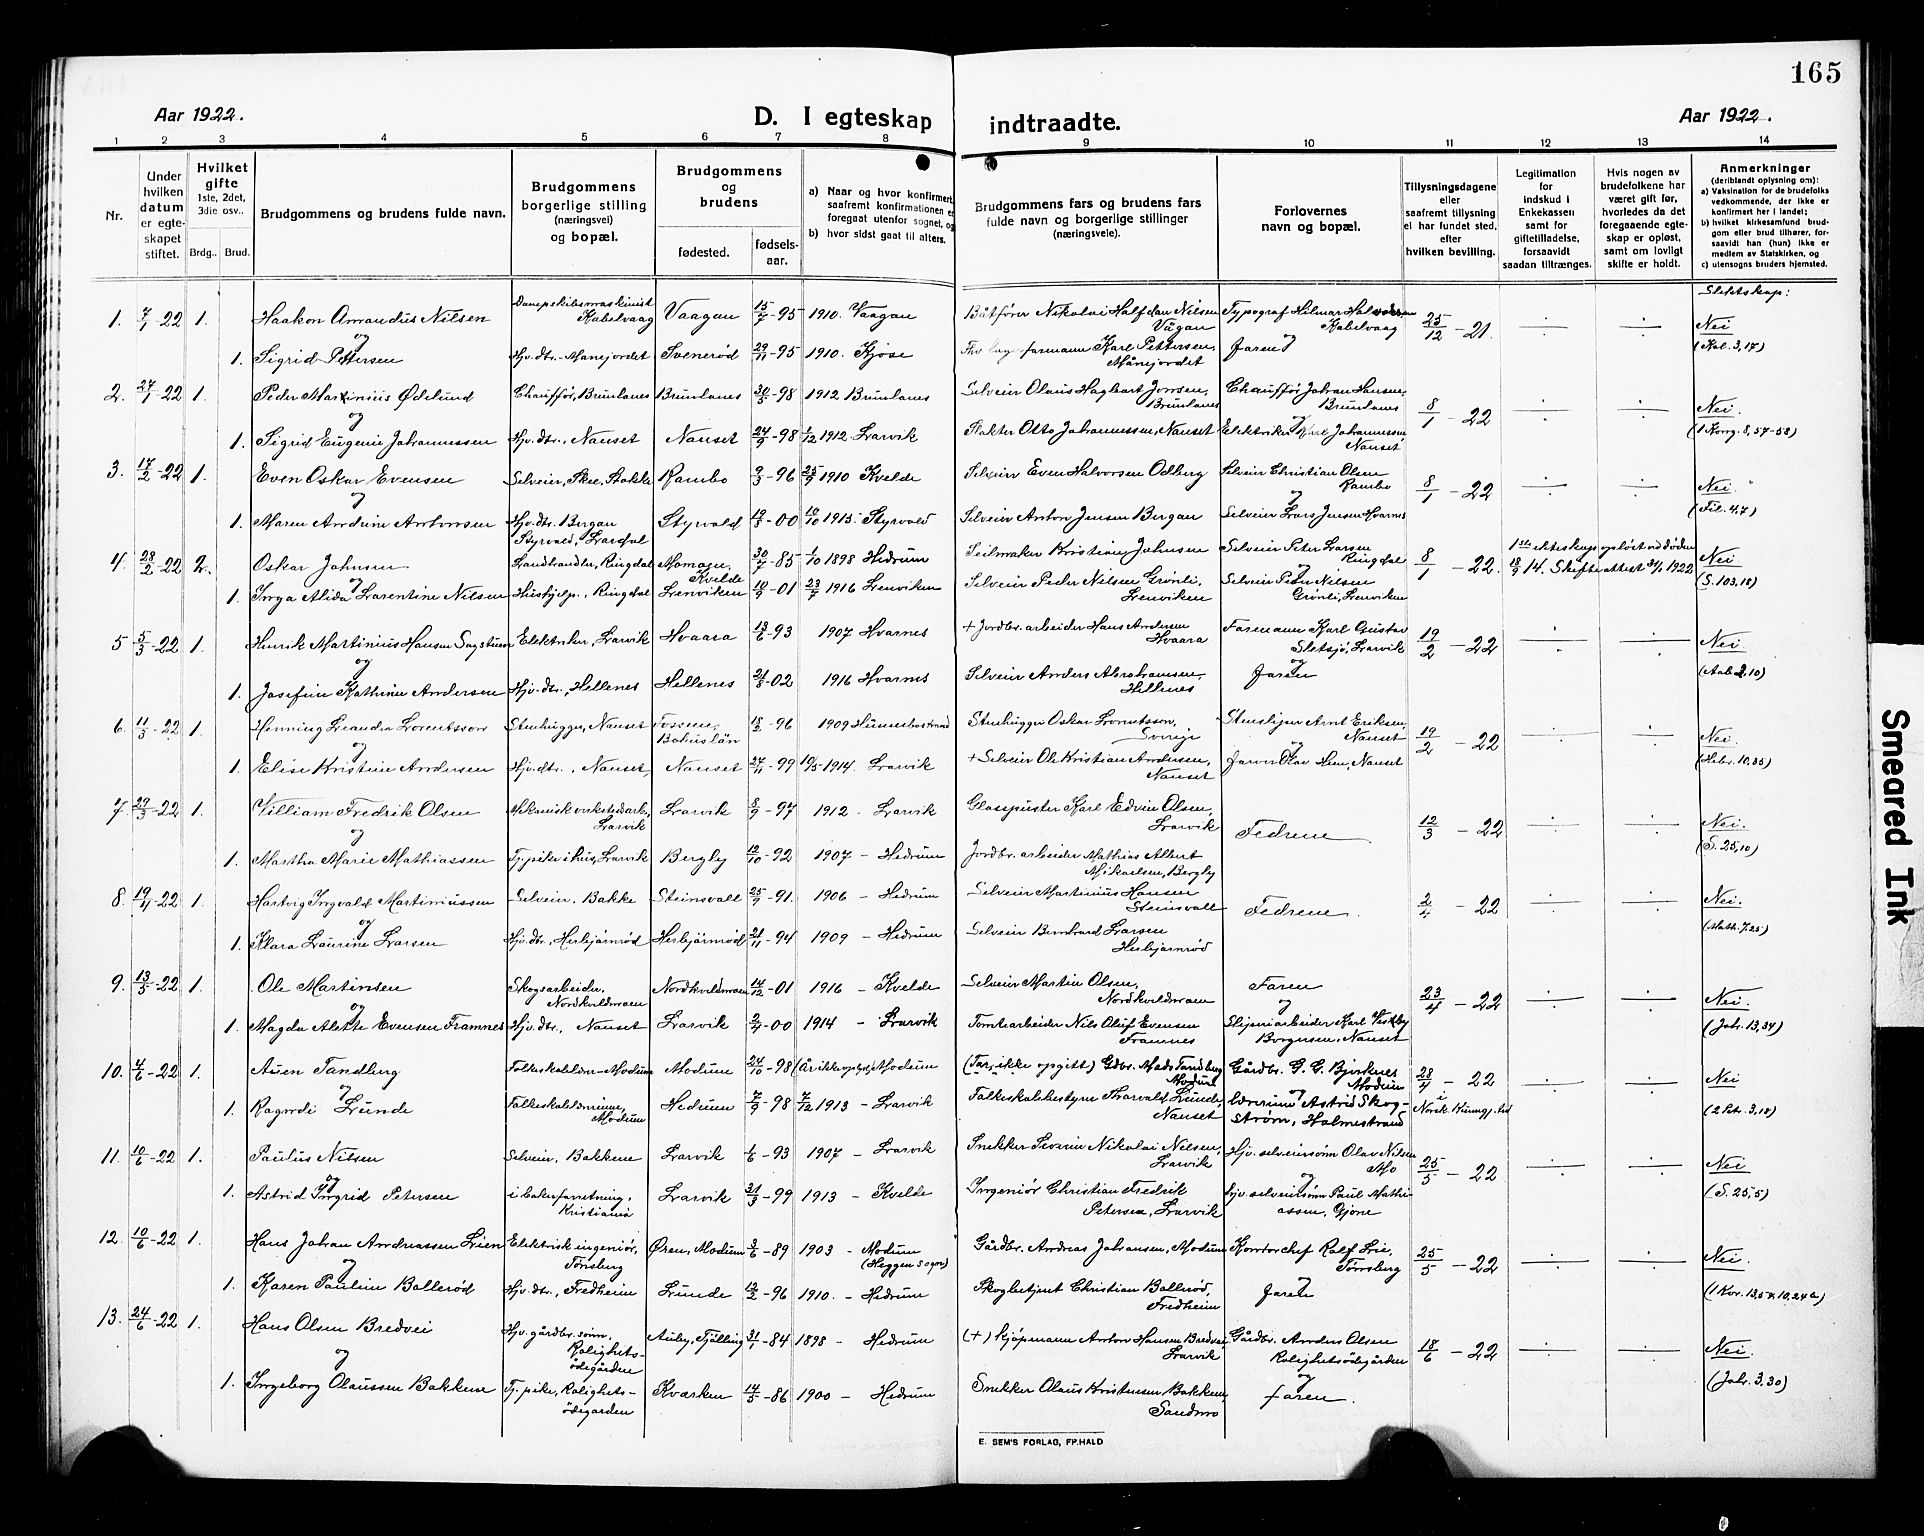 165
Aar 1922.
D. I egteskap indtraadte.
Aar 1922.
1 2 3 4 5 6 7 8 9 10 11 12 13 14
Nr.
Under hvilken datum er egteskapet stiftet.
Hvilket gifte 1ste, 2det, 3die osv..
Brdg.. Brud.
Brudgommens og brudens fulde navn.
Brudgommens borgerlige stilling (næringsvei) og bopæl.
Brudgommens og brudens
fødested. fødsels-aar.
a) Naar og hvor konfirmert, saafremt konfirmationen er foregaat utenfor sognet, og
b) hvor sidst gaat til alters.
Brudgommens fars og brudens fars fulde navn og borgerlige stillinger (næringsveie).
Forlovernes navn og bopæl.
Tillysningsdagene eller saafremt tillysning ei har fundet sted, efter hvilken bevilling.
Legitimation for indskud i Enkekassen samt for giftetilladelse, forsaavidt saadan tiltrænges.
Hvis nogen av brudefolkene har været gift før, hvorledes da det foregaaende egteskap er opløst, samt om lovligt skifte er holdt.
Anmerkninger (deriblandt oplysning om): a) Vaksination for de brudefolks vedkommende, der ikke er konfirmert her i landet; b) hvilket kirkesamfund brudgom eller brud tilhører, forsaavidt han (hun) ikke er medlem av Statskirken, og c) utensogns bruders hjemsted.
Slektskap:
1. 7/1-22 1. Haakon Amandus Nilsen Dampskibsmaskinist Kabelvaag Vaagan 15/7-95 1910. Vaagan Båtfører Nikolai Halfdan Nilsen Vågan Typograf Hilmar Kabelvaag 25/12-21. Nei (Kol. 3,17)
og
1. Sigrid Pettersen Hjv. dtr. Manejordet Svenerød 29/11-95 1910. Kjose formann Karl Pettersen, Månejordet Faren
2. 27/1-22 1. Peder Martinius Ødelund Chauffør, Brunlanes Brunlanes 30/5-98 1912 Brunlanes Selveier Olaus Hagbart Jonsen, Brunlanes Chauffør Johan Hansen, Brunlanes 8/1-22 Nei. (1 Korg. 8,57-58)
og
1. Sigrid Eugenie Johannessen Hjv. dtr., Nanset Nanset 24/9-98 1/12 1912. Larvik Slakter Otto Johannessen, Nanset Elektriker Karl Johannessen, Nanset
3. 17/2-22 1. Even Oskar Evensen Selveier, Skee, Stokke Rambo 9/3-96 25/9 1910 Kvelde Selveier Even Halvorsen Odberg Selveier Christian Olsen Rambo 8/1-22 Nei (Fil. 4,7)
og
1. Maren Andrine Antonsen Hjv. dtr. Bergan Styrvold, Lardal Styrvold 19/3-00 10/10 1915 Styrvold Selveier Anton Jensen Bergan Selveier Lars Jensen Hvarnes
4. 28/2-22 2. Oskar Johnsen Landhandler, Ringdal Momoen, Kvelde 30/7-85 1/10 1898 Hedrum Seilmaker Kristian Johnsen Selveier Peter Larsen Ringdal 8/1-22. 1ste ekteskap opløst ved døden 18/9 14. Skifteattest 31/1 1922 Nei (S. 103,18)
og
1. Inga Alida Larentine Nilsen Hushjelp, Ringdal Lenviken 10/9-01 23/7 1916 Lenviken Selveier Peder Nilsen Grønli, Lenviken Selveier Peder Nilsen Grønli, Lenviken
5 5/3-22 1. Henrik Martinius Hansen Sagstuen Elektriker, Larvik Hvaara 13/6-93 1907 Hvarnes + Jordbr. arbeider Hans Andersen Hvaara Faremann Karl Gustav Sletsjø, Larvik 19/2-22 Nei
og
1. Josefine Kathrine Andersen Hjv. dtr., Hellenes Hellenes 21/8-02 1916 Hvarnes Selveier Anders Abrahamsen, Hellenes Faren
6. 11/3-22 1. Henning Leander Lorentsson Stenhugger, Nanset Fossen, Bohuslän 18/2-96 1909 Hunnebostrand Stenhugger Oskar Lorentsson, Sverige Stensliper Arnt Eriksen, Nanset 19/2-22 Nei. (Hebr. 10,35)
og
1. Elise Kristine Andersen Hjv. dtr., Nanset, Nanset 27/11-99 10/5-1914. Larvik + Selveier Ole Kristian Andersen, Nanset Farver Olav Hem, Nanset
7. 29/3-22 1. William Fredrik Olsen Mekanisk verkstedarb., Larvik Larvik 8/9-97 1912 - Larvik Glasspuster Karl Edvin Olsen, Larvik Fedrene 12/3-22 Nei. (S. 25,10)
og
1. Martha Marie Mathiassen Tj. pike i hus, Larvik Bergby 12/10-92 1907 - Hedrum Jordbr. arbeider Mathias Albert Mikaelsen, Bergby
8. 19/4-22 1. Hartvig Ingvald Martiniussen Selveier, Bakke Steinsvoll 25/9-91. 1906 - Hedrum Selveier Martinius Hansen Steinsvoll Fedrene. 2/4-22 Nei. (Math. 7,25)
og
1. Klara Laurine Larsen Hjv. dtr., Hesbjørnrød Hesbjørnrød 21/11-94 1909 - Hedrum Selveier Bernhard Larsen Hesbjørnrød
9. 13/5-22 1. Ole Martinsen Skogsarbeider, Nordkveldmoen Nordkveldmoen 14/12-01 1916 - Kvelde Selveier Martin Olsen, Nordkveldmoen Faren 23/4-22 Nei. (Joh. 13,34)
og og
1. Magda Alette Evensen Framnes Hjv. dtr., Nanset Larvik 2/4-00 1914 - Larvik Tomtearbeider Nils Oluf Evensen Framnes Sliperiarbeider Karl Vestby Borgersen, Nanset
10. 4/6-22 1. Auen Tandberg Folkeskolelærer - Modum Modum 24/10-98 (År ikke opgitt) Modum (Far, ikke opgitt) Gdbr. Mads Tandberg Modum Gårdbr. G. G. Bjørknes Modum 28/4-22 Nei (2 Petr. 3,18)
og
1. Ragndi Lunde Folkeskolelærerinne, Modum Hedrum 7/9-98 7/12 1913 - Larvik Folkeskolebestyrer Thorvald Lunde, Nanset Lærerinne Astrid Skogstrøm, Holmestrand i Norsk Kunngj.tid
11. 10/6-22 1. Paulus Nilsen Selveier, Bakkene Larvik 1/6-93 1907 - Larvik Snekker Severin Nikolai Nilsen, Larvik Hjv. selveiersønn Olav Nilsen Mo 25/5-22 Nei (S. 25,5)
og
1. Astrid Ingrid Petersen i bokerforretning, Kristiania Larvik 31/3-99 1913 - Kvelde Ingeniør Christian Fredrik Petersen, Larvik hjv. selveiersønn Paul Mathiassen, Gjone
12. 10/6-22 1. Hans Johan Andreassen Lien Elektrisk ingeniør, Tønsberg Øren, Modum 3/6-89 1903 - Modum (Heggen sogn) Gårdbr. Andreas Johansen, Modum Kontorchef Rolf Lie, Tønsberg 25/5-22 Nei. (1 Kor. 13,5 & 10,24 a)
og
1. Karen Pauline Bollerød Hjv. dtr., Fredheim Lunde 12/2-96 1910. - Hedrum Skogbetjent Christian Bollerød, Fredheim Faren
13. 24/6-22 1. Hans Olsen Bredvei Hjv. gårdbr. sønn, Rolighetsødegården Auby, Tjølling 31/1-84 1898 - Hedrum (+) Kjøpmann Anton Hansen Bredvei, Larvik Gårdbr. Anders Olsen Rolighetsødegården 18/6-22 Nei. (Joh. 3,30)
og og
1. Ingeborg Olaussen Bakkene Tj. pike, Rolighetsødegården Kvarken 14/5-86 1900 - Hedrum Snekker Olaus Kristensen Bakkene, Sandmo faren.
E. SEM'S FORLAG, FR.HALD
Smeared Ink